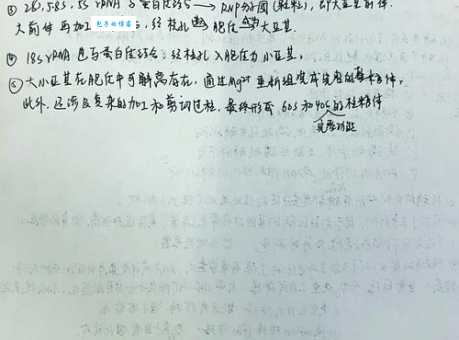 ③ 28S,5.8S,5S rRNA 与蛋白质结合 → RNP分(颗粒),即大亚基前体.
大前体再加工 包子的博客 ,经核孔 入 胞质 大亚基.
④ 18S rRNA 也与蛋白质结合,经核孔入胞质为小亚基,
⑤ 大小亚基在胞质中可解离存在,通过Mg²⁺重新组装成完整的核糖体,
此外,还涉及复杂的加工和剪切过程,最终形成 60S 和 40S 的核糖体
亚基